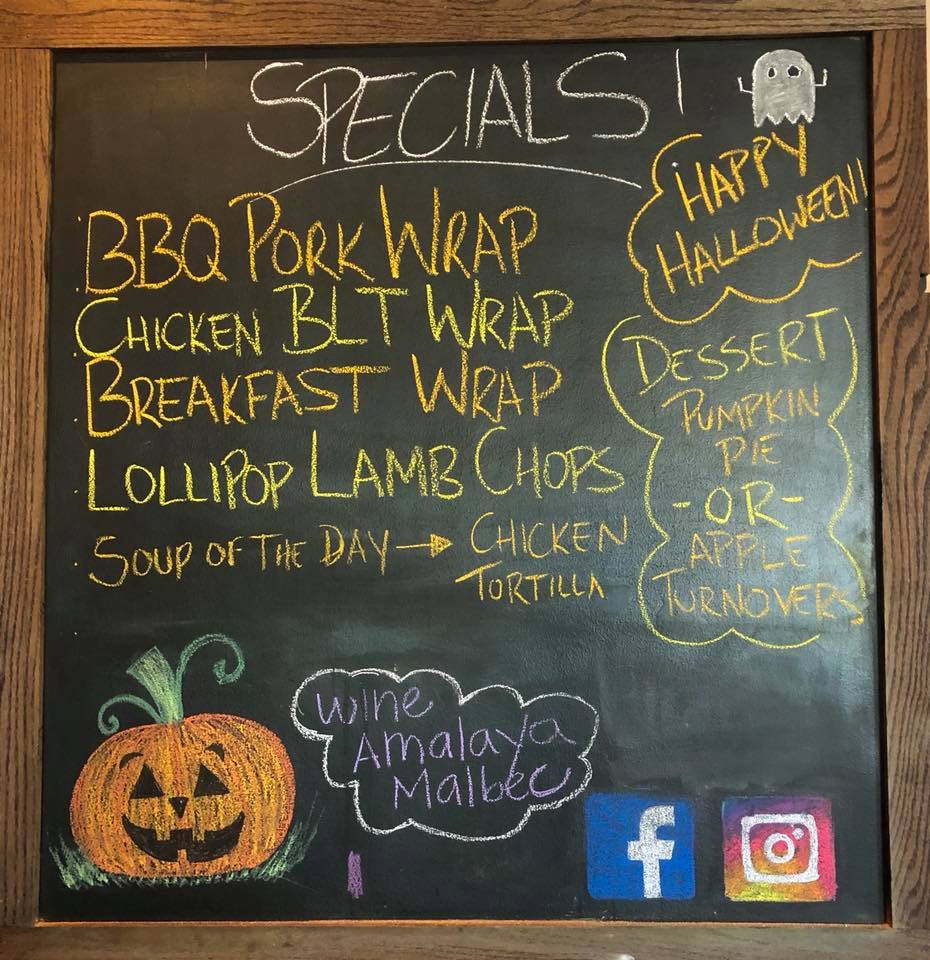 SPECIALS!
HAPPY
HALLOWEEN!
BBQ PORK WRAP
CHICKEN BLT WRAP
BREAKFAST WRAP
LOLLIPOP LAMB CHOPS
SOUP OF THE DAY → CHICKEN
TORTILLA
DESSERT
PUMPKIN
PIE
-OR-
APPLE
TURNOVERS
Wine
Amalaya
Malbec
f